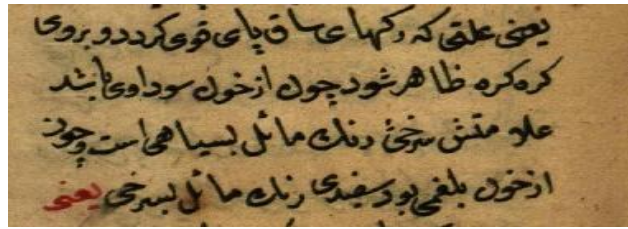 یعنی علتی که رکهای ساق پای قوی کردد و بروی
کره کره ظاهر شود چون از خون سوداوی باشد
علامتش سرخی رنك مائل بسیاهی است و چون
از خون بلغمی بود سفیدی رنك مائل بسرخی یعنی